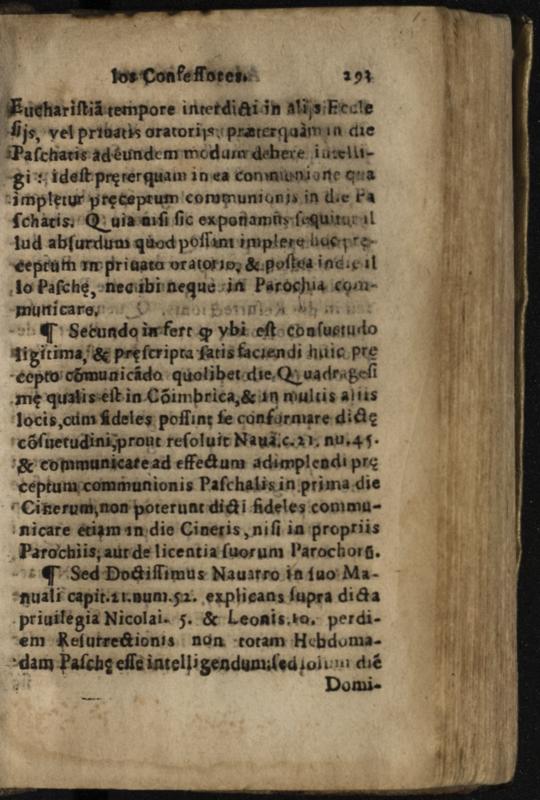 los Confessores. 293
Euchariſtiã tempore interdicti in alijs Eccle
ſijs, vel priuatis oratorijs, præterquàm in die
Paſchatis ad eundem modum debere intelli-
gi: id est pręterquam in ea communione qua
impletur pręceptum communionis in die Pa
ſchatis. Quia niſi ſic exponamus ſequitur il
lud abſurdum quòd poſſint implere hoc pre-
ceptum in priuato oratorio, & poſtea in die il
lo Paſchę, nec ibi neque in Parochia com-
municare.
¶ Secundo infert ꝙ vbi est conſuetudo
ligitima, & pręſcripta ſatisfaciendi huic prę
cepto cõmunicãdo quolibet die Quadrageſi
mę qualis est in Cõimbrica, & in multis aliis
locis, cùm fideles poſſint ſe conformare dictę
cõſuetudini, prout reſoluit Nauã. c. 21. nu. 45.
& communicare ad effectum adimplendi prę
ceptum communionis Paſchalis in prima die
Cinerum, non poterunt dicti fideles commu-
nicare etiam in die Cineris, niſi in propriis
Parochiis, aut de licentia ſuorum Parochorũ.
¶ Sed Doctiſſimus Nauarro in ſuo Ma-
nuali capit. 21. num. 52. explicans ſupra dicta
priuilegia Nicolai. 5. & Leonis. 10. per di-
em Reſurrectionis non totam Hebdoma-
dam Paſchę eſſe intelligendum: ſed ſolum diẽ
Domi-